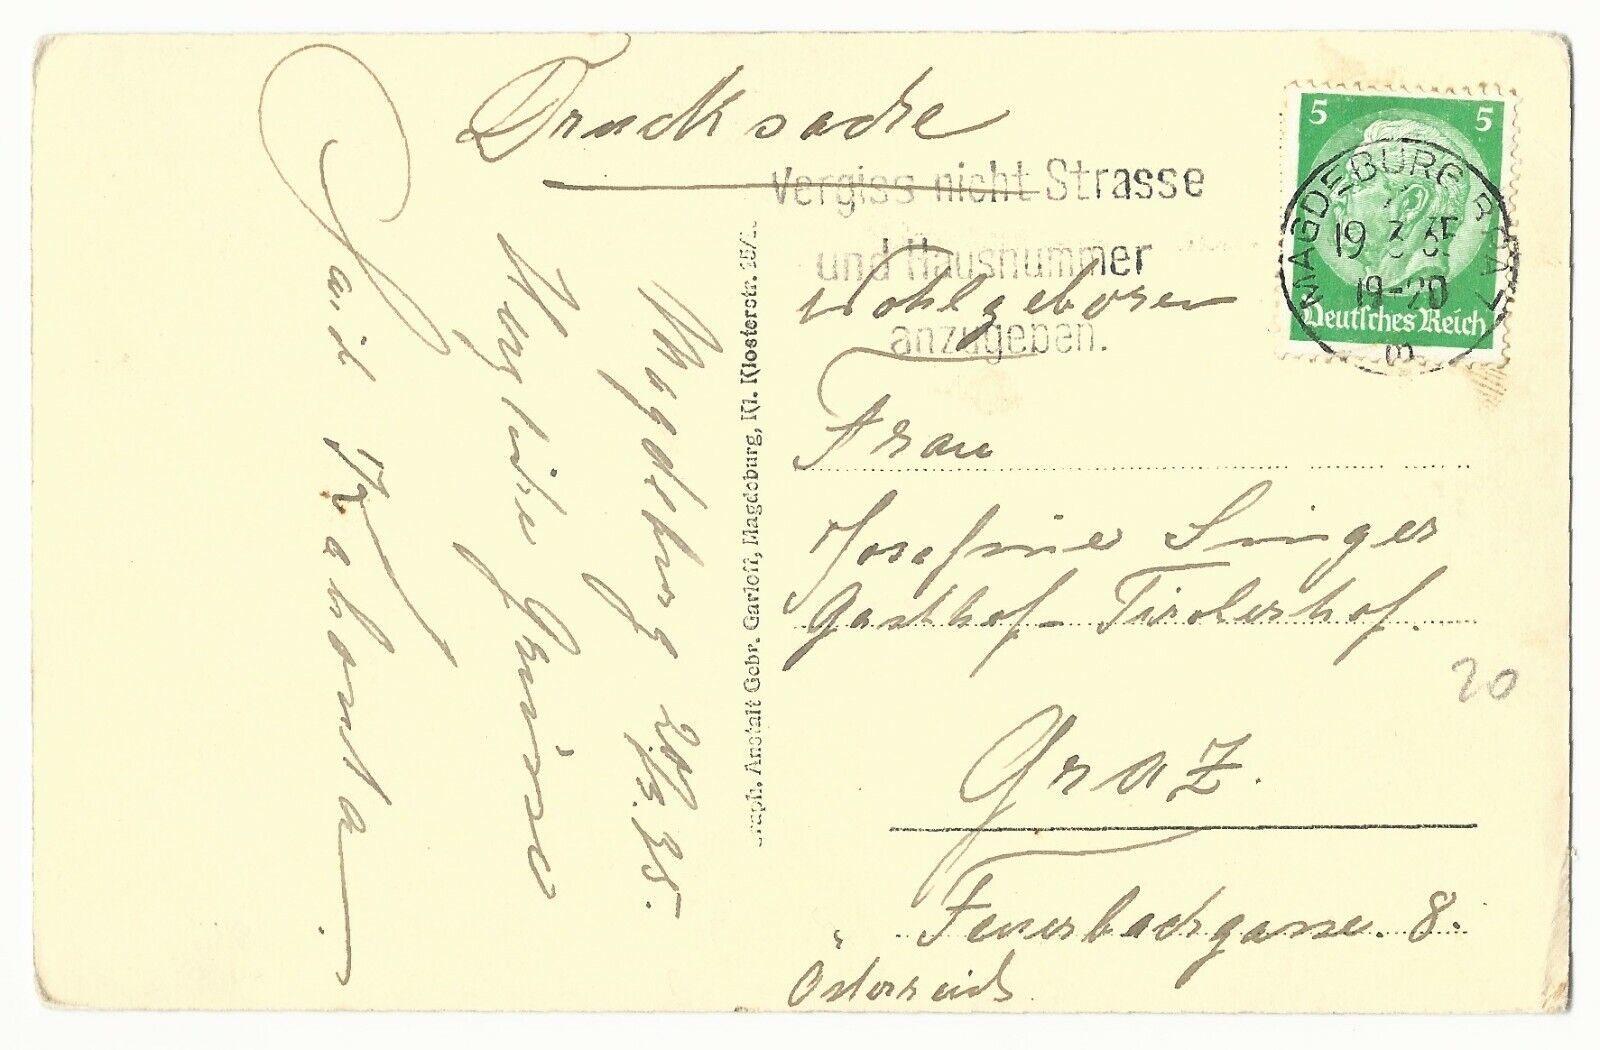 Drucksache
Vergiss nicht Strasse
und Hausnummer
anzugeben.
5 5
Deutsches Reich
MAGDEBURG
19 3 35
19-20
Wohlgeboren
Frau
Josefine Singer
Gasthof-Tirolerhof.
Graz.
Feuerbachgasse. 8.
Österreich
20
Graph. Anstalt Gebr. Garloff, Magdeburg, Kl. Klosterstr. 15/
Magdeburg 20/3.35.
Herzliche Grüsse